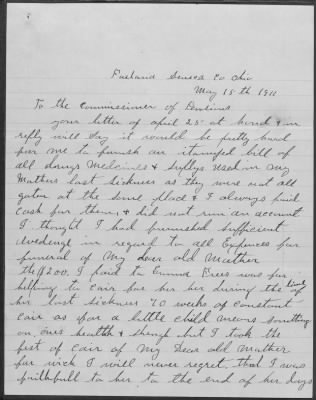 Seneca Co Ohio
May 18th 1910
To the Commissioner of Pensions
your letter of april 25 at hand & in
reply will say it would be pretty hard
for me to furnish an itemized bill of
all Used in my
Mothers last sickness as they were not all
gotten at the same place & I always paid
cash for them & did not run an account
I thought I had furnished sufficient
in regard to all Expences for
funeral of My dear old Mother
the $200. I paid to Emma was for
helping to cair for her during the time of
her last sickness 70 weeks of constant
cair as for a little child means something
on ones health & but I took the
best of cair of My Dear old Mother
for wich I will never regret, that I was
faithfull to her to the end of her days